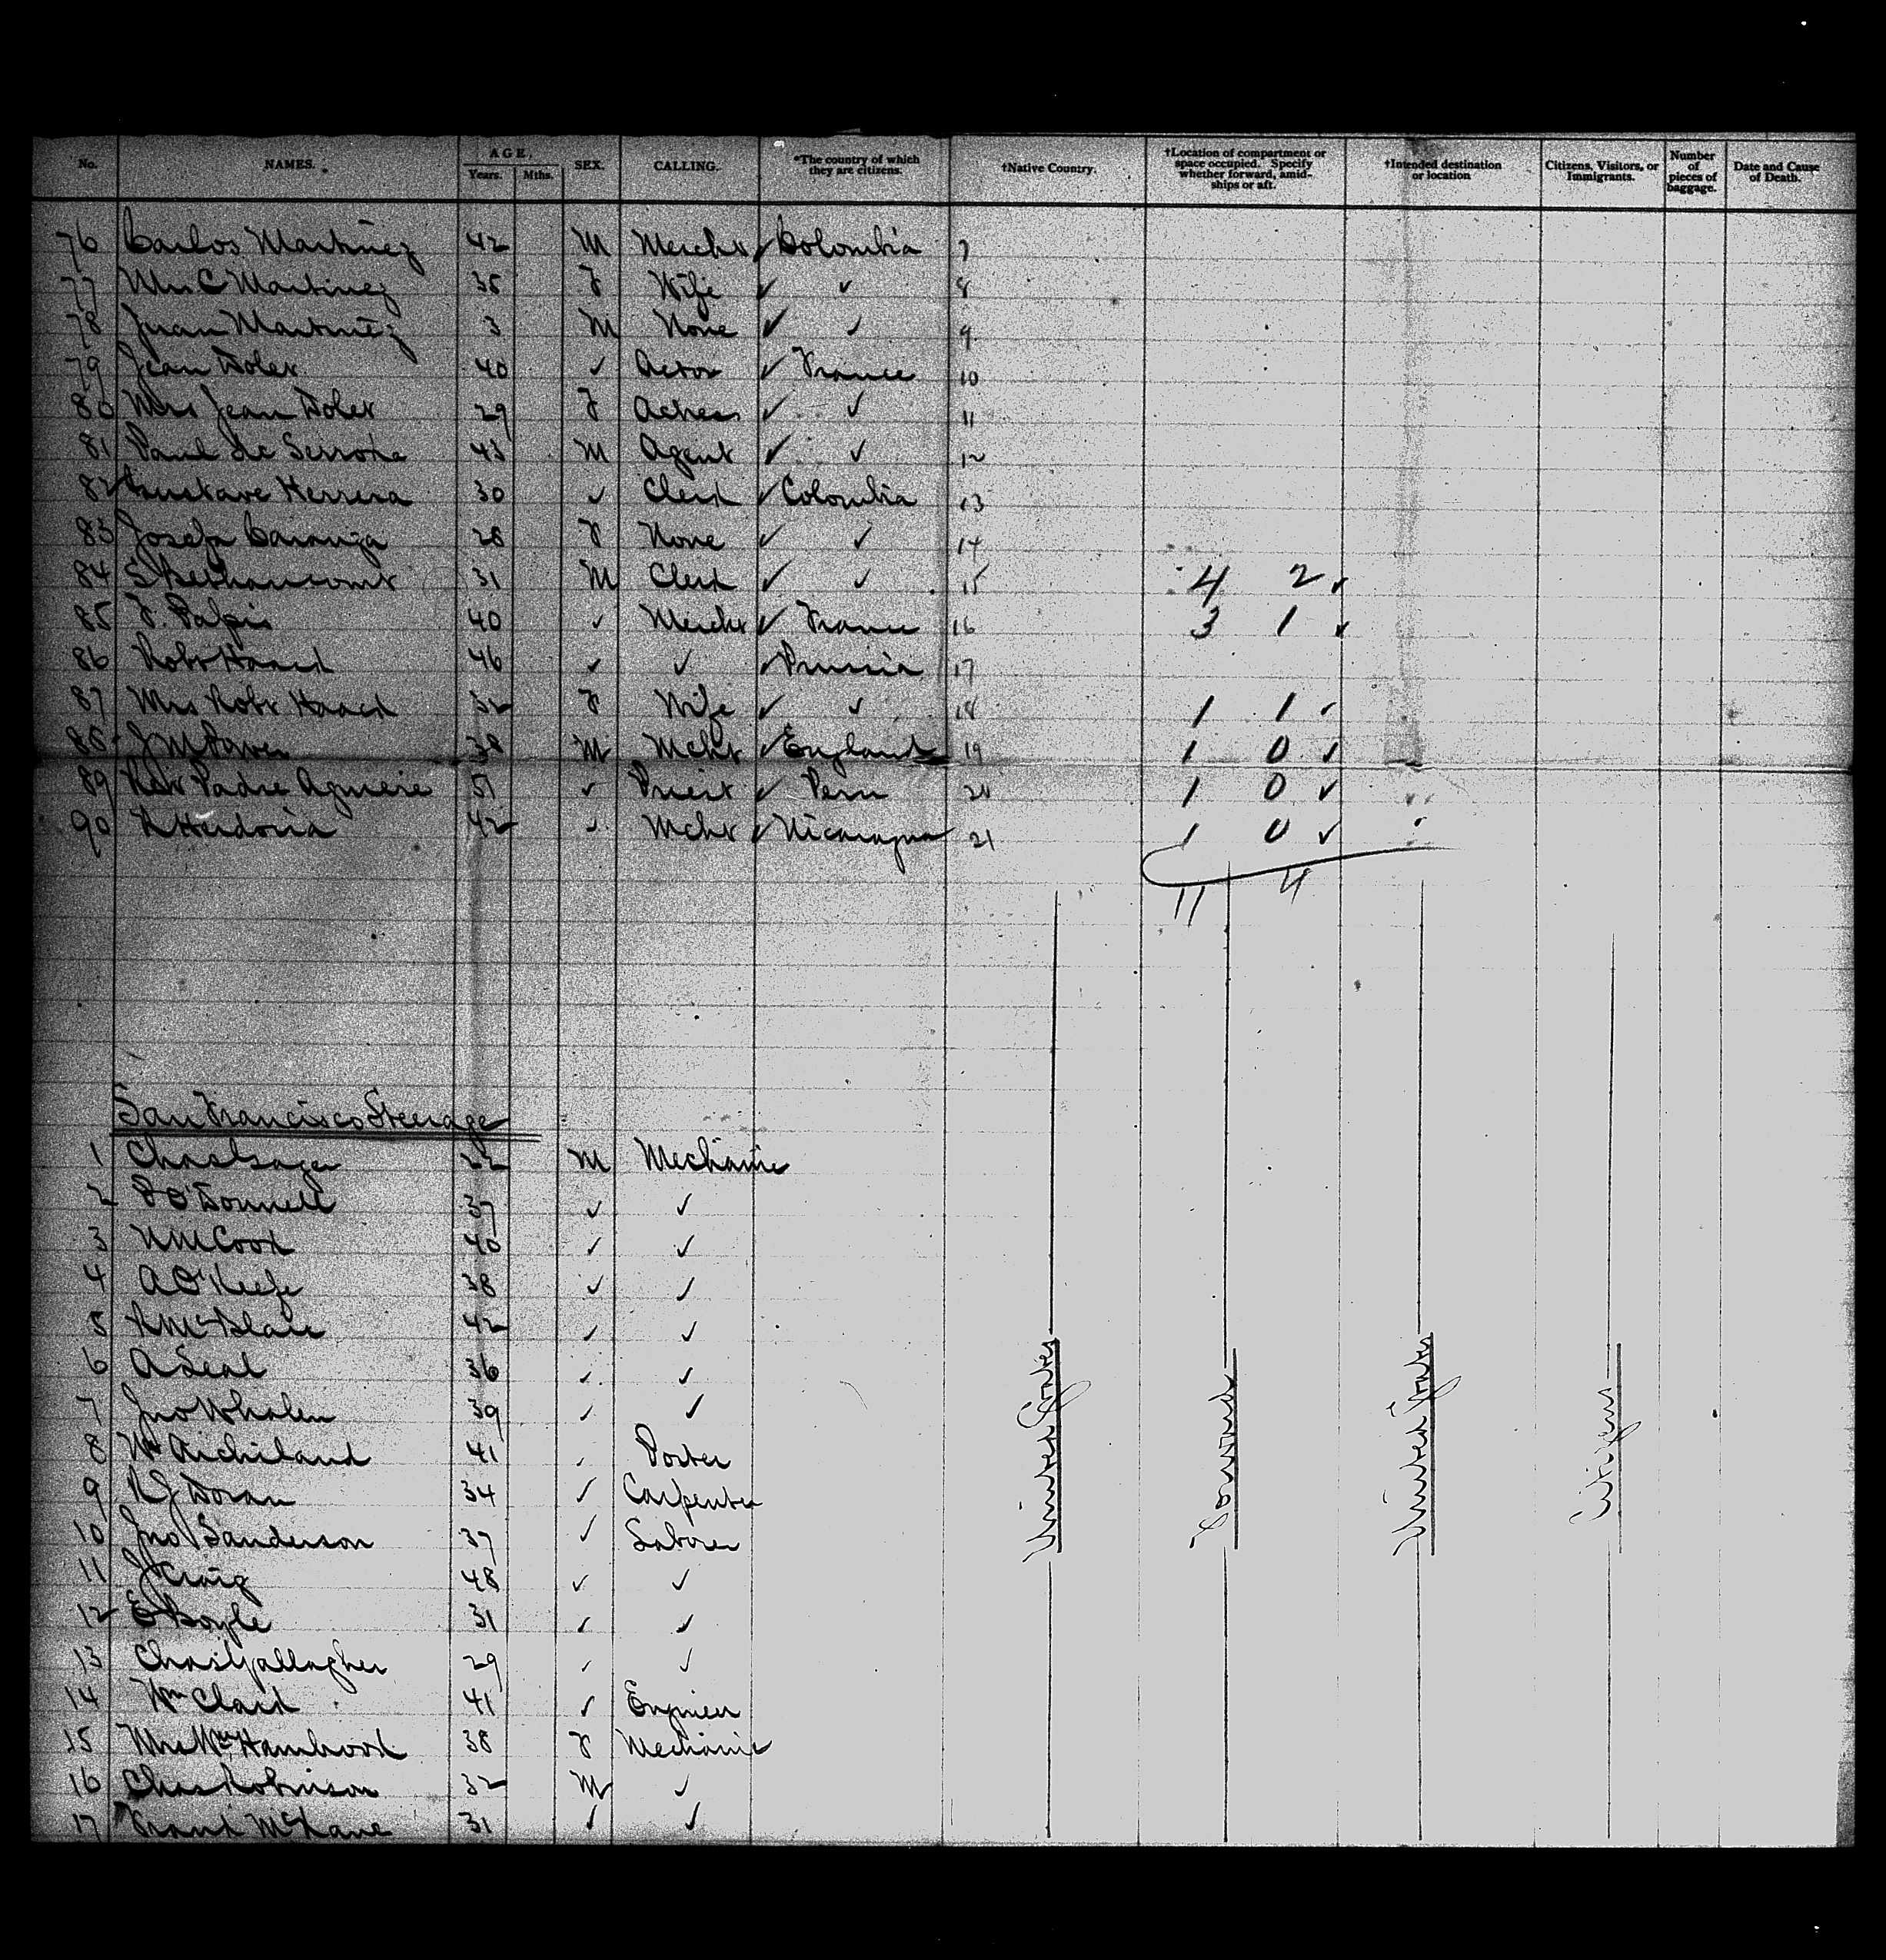 No. NAMES. AGE. Years. Mths. SEX. CALLING. *The country of which they are citizens. †Native Country. †Location of compartment or space occupied. Specify whether forward, amidships or aft. †Intended destination or location Citizens, Visitors, or Immigrants. Number of pieces of baggage. Date and Cause of Death.
76 Carlos Martinez 42 M Mercht ✓ Colombia 7
77 Mrs C Martinez 35 F Wife ✓ ✓ 8
78 Juan Martinez 3 M None ✓ ✓ 9
79 Jean 40 ✓ Actor ✓ France 10
80 Mrs Jean 29 F Actress ✓ ✓ 11
81 Paul de 43 M Agent ✓ ✓ 12
82 Gustave Herrera 30 ✓ Clerk ✓ Colombia 13
83 Josefa 28 F None ✓ ✓ 14
84 31 M Clerk ✓ ✓ 15 4 2 ✓
85 F. 40 ✓ Mercht ✓ France 16 3 1 ✓
86 Robt Haack 46 ✓ ✓ ✓ Prussia 17
87 Mrs Robt Haack 32 F Wife ✓ ✓ 18 1 1 ✓
88 J M 38 M Mcht ✓ England 19 1 0 ✓
89 Rev Padre Aguirre 51 ✓ Priest ✓ Peru 20 1 0 ✓
90 42 ✓ Mcht ✓ Nicaragua 21 1 0 ✓
11 4
San Francisco Steerage
1 Chas 22 M Mechanic
2 O'Donnell 37 ✓ ✓
3 Wm Cook 40 ✓ ✓
4 A O'Keefe 38 ✓ ✓
5 R 42 ✓ ✓
6 A Seal 36 ✓ ✓
7 Jno Whalen 39 ✓ ✓
8 Wm 41 ✓ Porter
9 R J Doran 34 ✓ Carpenter
10 Jno Sanderson 37 ✓ Laborer
11 J Craig 48 ✓ ✓
12 E Boyle 31 ✓ ✓
13 Chas Gallagher 29 ✓ ✓
14 Wm Clark 41 ✓ Engineer
15 Mrs Wm 38 F Mechanic
16 Chas Robinson 32 M ✓
17 Frank McKane 31 ✓ ✓
United States
Forward
United States
Citizens